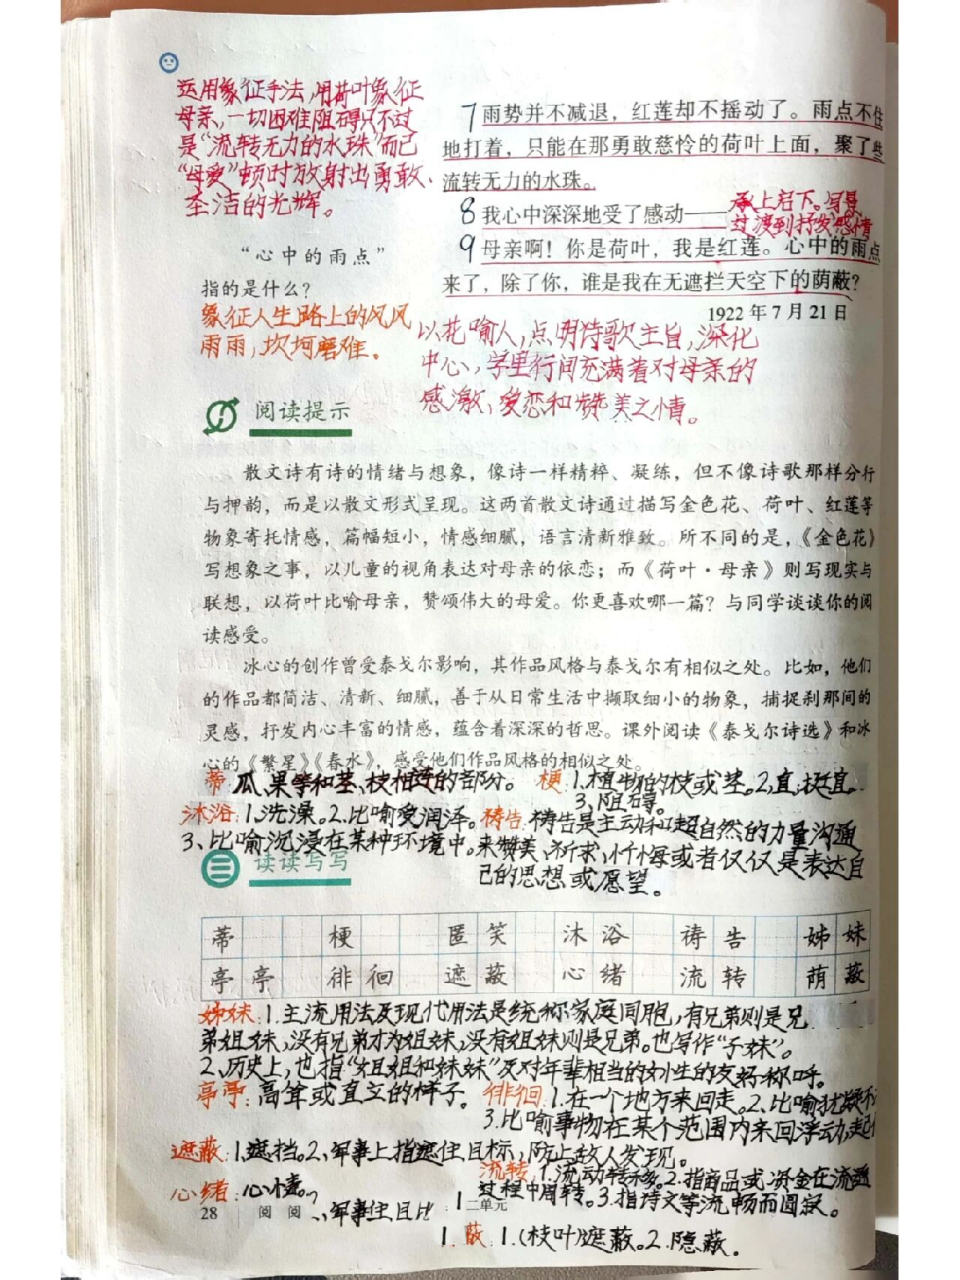 运用象征手法,用荷叶象征
母亲,一切困难阻碍只不过
是“流转无力的水珠”而已
“母爱”顿时放射出勇敢、
圣洁的光辉。
7 雨势并不减退，红莲却不摇动了。雨点不住
地打着，只能在那勇敢慈怜的荷叶上面，聚了些
流转无力的水珠。
承上启下。写景
8 我心中深深地受了感动——
过渡到抒发感情
9 母亲啊！你是荷叶，我是红莲。心中的雨点
来了，除了你，谁是我在无遮拦天空下的荫蔽？
1922 年 7 月 21 日
“心中的雨点”
指的是什么？
象征人生路上的风风
雨雨,坎坷磨难。
以花喻人,点明诗歌主旨,深化
中心,字里行间充满着对母亲的
感激、爱恋和赞美之情。
阅读提示
散文诗有诗的情绪与想象，像诗一样精粹、凝练，但不像诗歌那样分行
与押韵，而是以散文形式呈现。这两首散文诗通过描写金色花、荷叶、红莲等
物象寄托情感，篇幅短小，情感细腻，语言清新雅致。所不同的是，《金色花》
写想象之事，以儿童的视角表达对母亲的依恋；而《荷叶·母亲》则写现实与
联想，以荷叶比喻母亲，赞颂伟大的母爱。你更喜欢哪一篇？与同学谈谈你的阅
读感受。
冰心的创作曾受泰戈尔影响，其作品风格与泰戈尔有相似之处。比如，他们
的作品都简洁、清新、细腻，善于从日常生活中撷取细小的物象，捕捉刹那间的
灵感，抒发内心丰富的情感，蕴含着深深的哲思。课外阅读《泰戈尔诗选》和冰
心的《繁星》《春水》，感受他们作品风格的相似之处。
蒂:瓜、果等和茎、枝相连的部分。
梗:1.植物的枝或茎。2.直,挺直。
3.阻碍。
沐浴:1.洗澡。2.比喻受润泽。
3、比喻沉浸在某种环境中。
祷告:祷告是主动和超自然的力量沟通
来赞美、祈求、忏悔或者仅仅是表达自
己的思想或愿望。
读读写写
蒂 梗 匿笑 沐浴 祷告 姊妹
亭亭 徘徊 遮蔽 心绪 流转 荫蔽
姊妹:1.主流用法及现代用法是统称家庭同胞,有兄弟则是兄
弟姐妹,没有兄弟才为姐妹,没有姐妹则是兄弟。也写作“子妹”。
2.历史上,也指“姐姐和妹妹”及对年辈相当的女生的友好称呼。
亭亭:高耸或直立的样子。
徘徊:1.在一个地方来回走。2.比喻犹疑不
3.比喻事物在某个范围内来回浮动,起伏
遮蔽:1.遮挡。2、军事上指遮住目标,防止敌人发现。
流转:1.流动转移。2.指商品或资金在流通
过程中周转。3.指诗文等流畅而圆润。
心绪:心情。
28 阅 阅
军事住目
二单元
蔽:1.(枝叶)遮蔽。2.隐蔽。